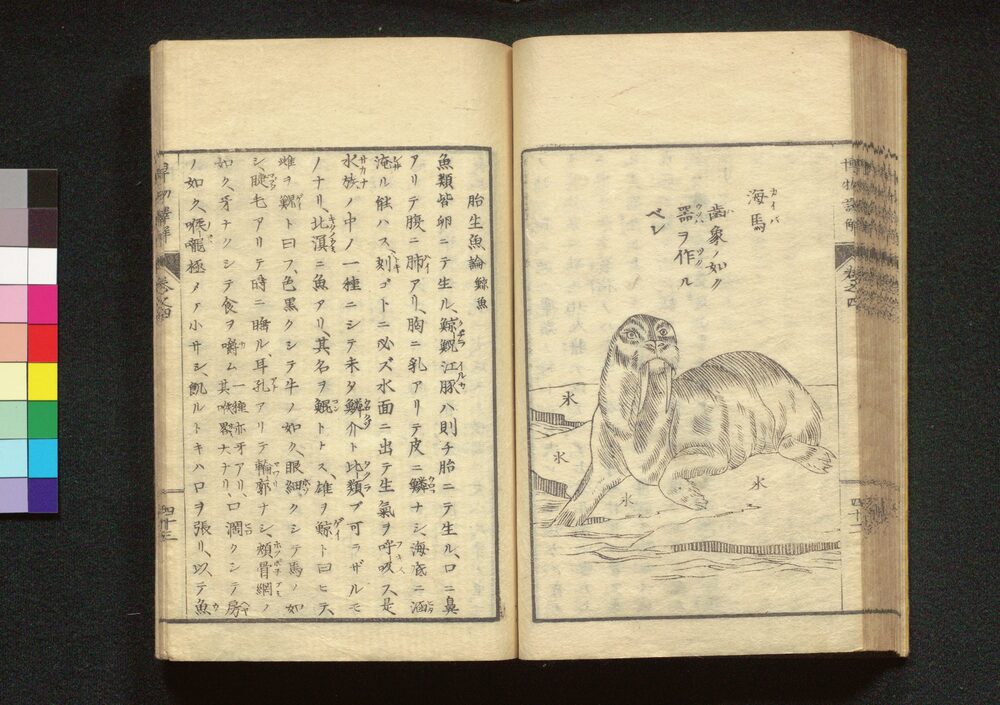 海馬
カイバ
齒象ノ如ク
器ヲ作ル
ベシ
氷
氷
氷
氷
博物
四十二
胎生魚論 鯨魚
魚類皆卵ニテ生ル、鯨鯢江豚ハ則チ胎ニテ生ル、口ニ鼻
アリテ腹ニ肺アリ、胸ニ乳アリテ皮ニ鱗ナシ、海底ニ涵
淹ル能ハス、刻ゴトニ必ズ水面ニ出テ生氣ヲ呼吸ス、是
水族ノ中ノ一種ニシテ未タ鱗介ト比類ブ可ラザルモ
ノナリ、北溟ニ魚アリ、其名ヲ鯤トス、雄ヲ鯨ト曰ヒ
雌ヲ鯢ト曰フ、色黒クシテ牛ノ如ク、眼細クシテ馬ノ如
シ、睫毛アリテ時ニ瞬ル、耳孔アリテ輪廓ナシ、頬骨網ノ
如ク、牙ナクシテ食ヲ嚼ム 一種亦牙アリ、其喉畧大ナリ、口濶クシテ房
ノ如ク、喉嚨極メテ小サシ、飢ルトキハ口ヲ張リ、以テ魚
卷之四
四十三